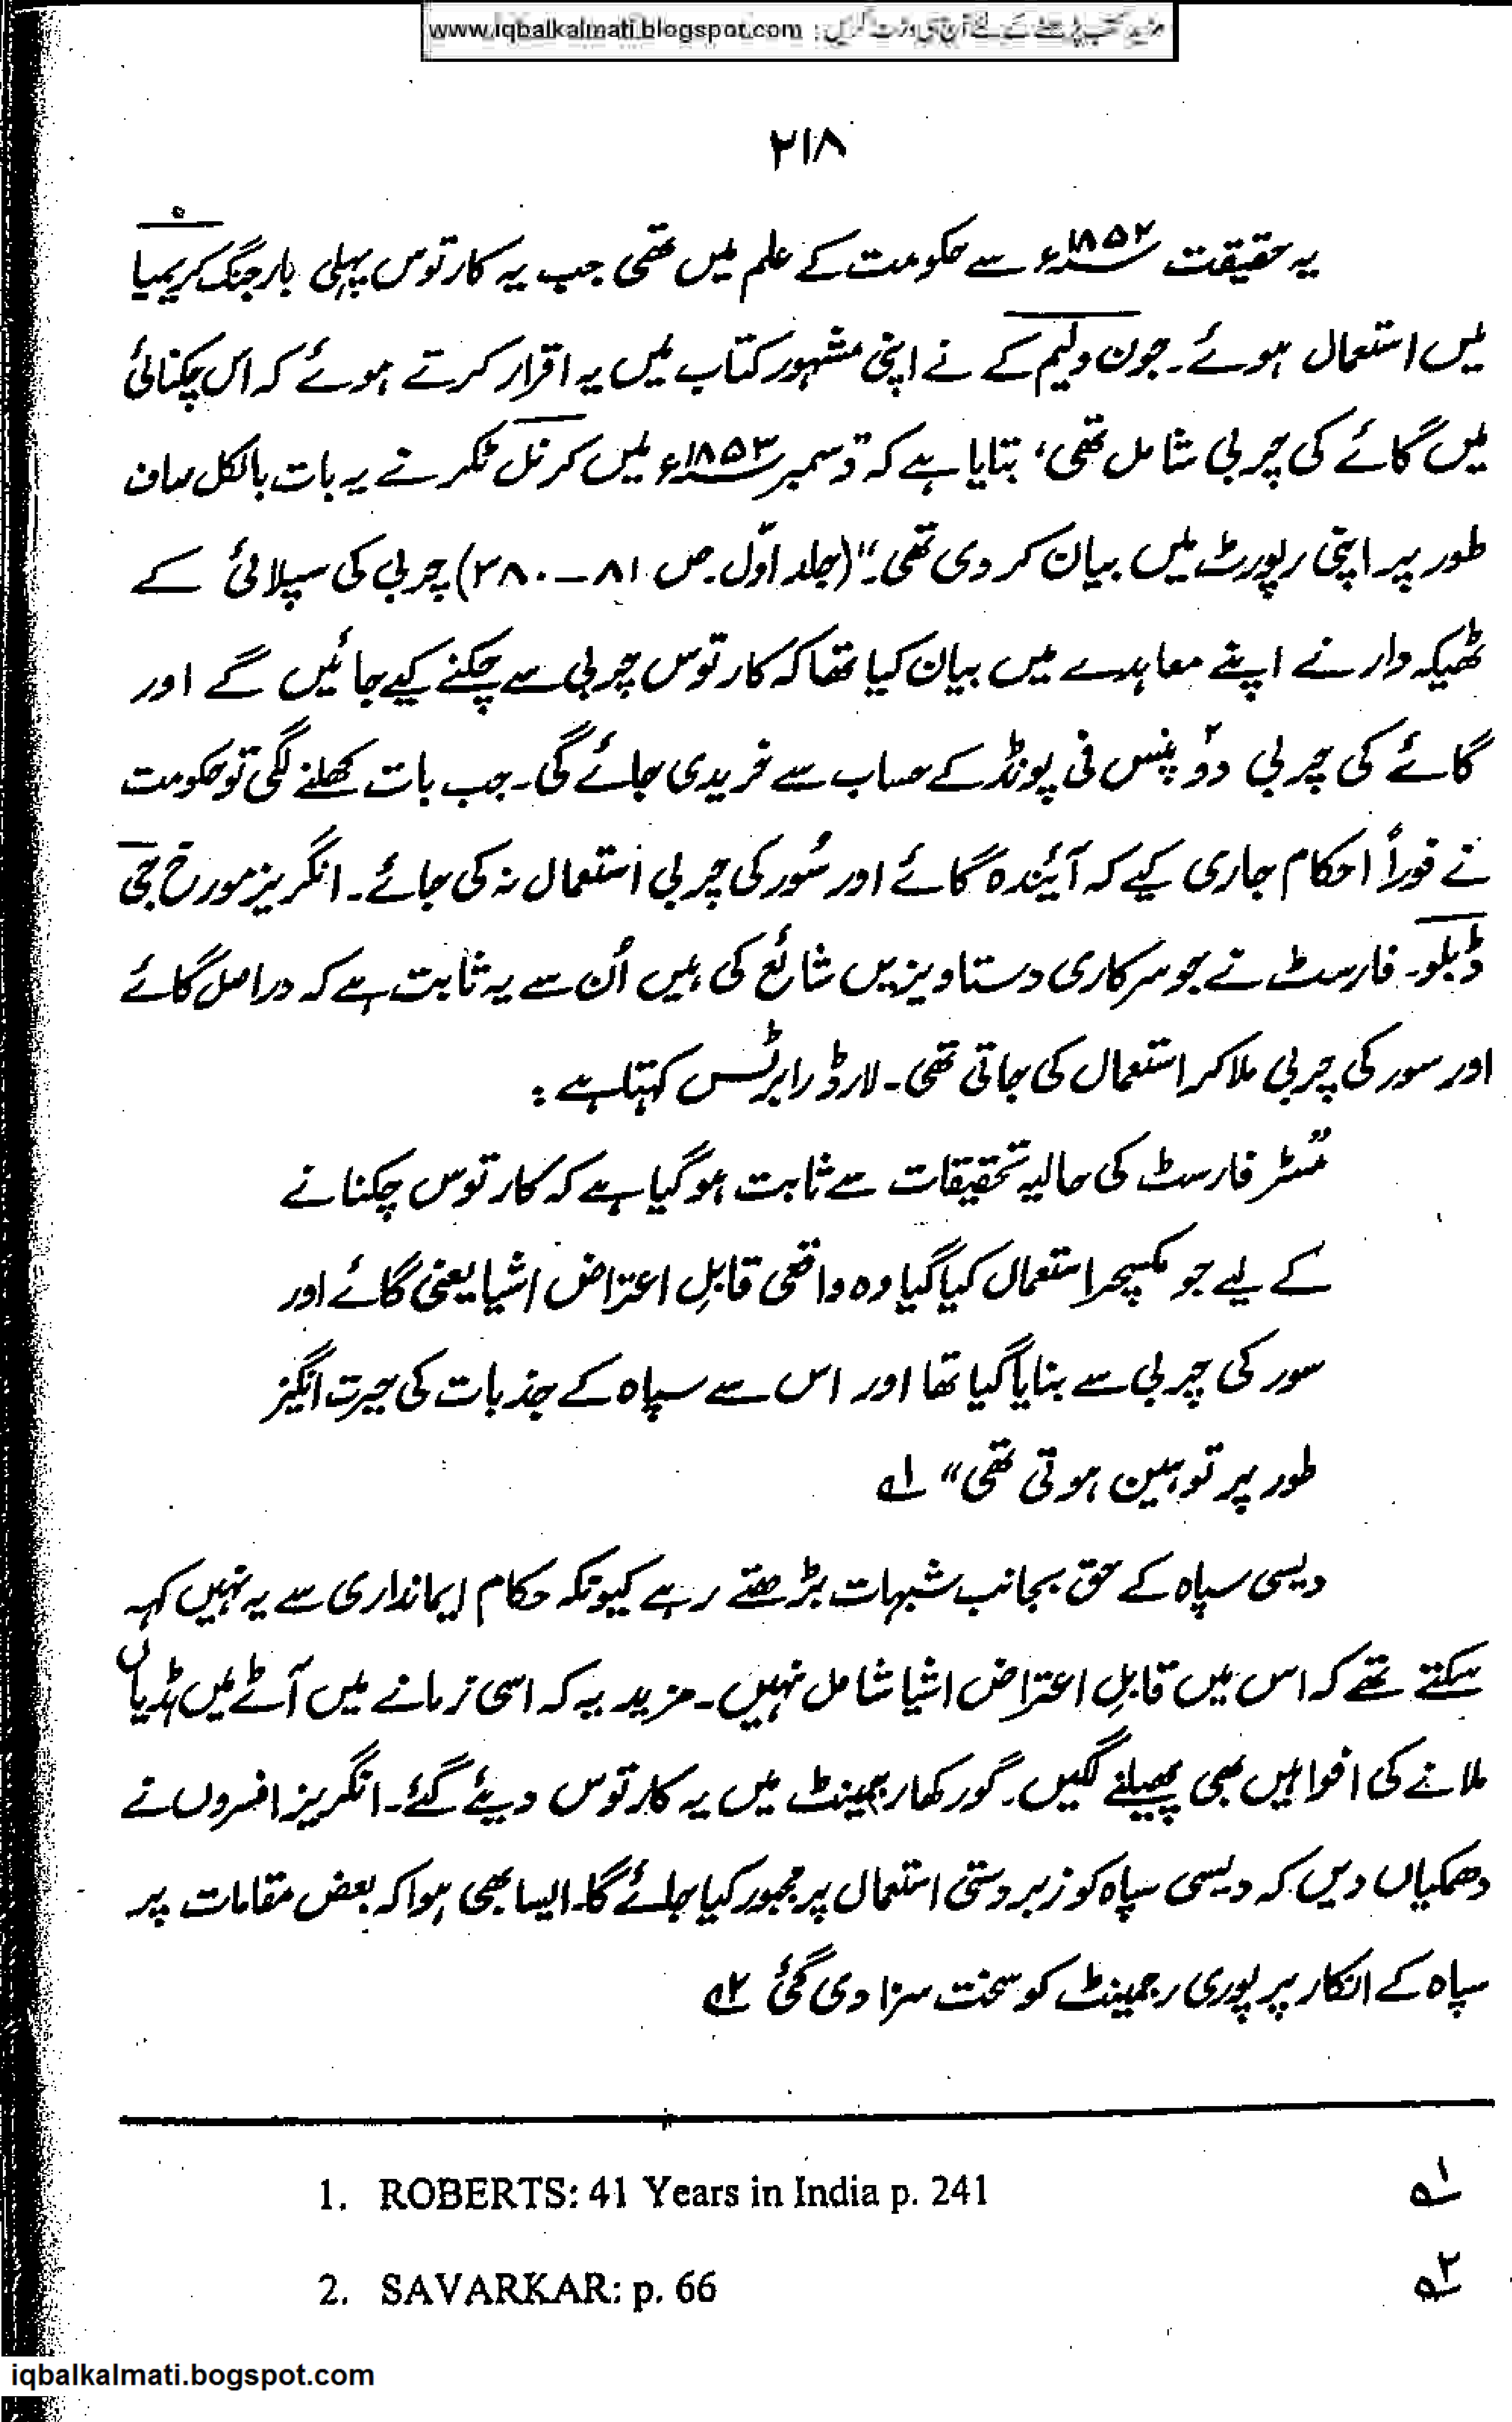 www.iqbalkalmati.blogspot.com : مزید کتب پڑھنے کے لئے آج ہی وزٹ کریں
۲۱۸
یہ حقیقت ۱۸۵۲ء سے حکومت کے علم میں تھی جب یہ کارتوس پہلی بار جنگ کریمیا
میں استعمال ہوئے۔ جون ولیم کے نے اپنی مشہور کتاب میں یہ اقرار کرتے ہوئے کہ اس چکنائی
میں گائے کی چربی شامل تھی، بتایا ہے کہ دسمبر ۱۸۵۳ء میں کرنل ٹکر نے یہ بات بالکل صاف
طور پر اپنی رپورٹ میں بیان کر دی تھی۔" (جلد اوّل۔ ص ۸۱ – ۳۸۰) چربی کی سپلائی کے
ٹھیکہ دار نے اپنے معاہدے میں بیان کیا تھا کہ کارتوس چربی سے چکنے کیے جائیں گے اور
گائے کی چربی دو۲ پنس فی پونڈ کے حساب سے خریدی جائے گی۔ جب بات کھلنے لگی تو حکومت
نے فوراً احکام جاری کیے کہ آئندہ گائے اور سُور کی چربی استعمال نہ کی جائے۔ انگریز مورخ جی
ڈبلو۔ فارسٹ نے جو سرکاری دستاویزیں شائع کی ہیں اُن سے یہ ثابت ہے کہ دراصل گائے
اور سور کی چربی ملا کر استعمال کی جاتی تھی۔ لارڈ رابرٹس کہتا ہے :
"مسٹر فارسٹ کی حالیہ تحقیقات سے ثابت ہو گیا ہے کہ کارتوس چکنانے
کے لیے جو مکسچر استعمال کیا گیا وہ واقعی قابلِ اعتراض اشیا یعنی گائے اور
سور کی چربی سے بنایا گیا تھا اور اس سے سپاہ کے جذبات کی حیرت انگیز
طور پر توہین ہوتی تھی" ۱ہ
دیسی سپاہ کے حق بجانب شبہات بڑھتے رہے کیونکہ حکام ایمانداری سے یہ نہیں کہہ
سکتے تھے کہ اس میں قابلِ اعتراض اشیا شامل نہیں۔ مزید یہ کہ اسی زمانے میں آٹے میں ہڈیاں
ملانے کی افواہیں بھی پھیلنے لگیں۔ گورکھا رجمینٹ میں یہ کارتوس دیئے گئے۔ انگریز افسروں نے
دھمکیاں دیں کہ دیسی سپاہ کو زبردستی استعمال پر مجبور کیا جائے گا۔ ایسا بھی ہوا کہ بعض مقامات پر
سپاہ کے انکار پر پوری رجمینٹ کو سخت سزا دی گئی ۲ہ
1. ROBERTS: 41 Years in India p. 241 ۱ہ
2. SAVARKAR: p. 66 ۲ہ
iqbalkalmati.bogspot.com